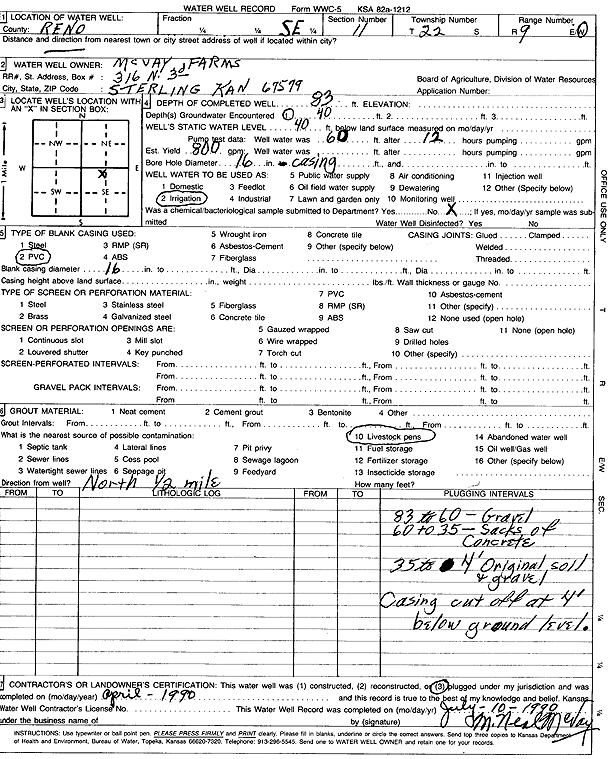 WATER WELL RECORD Form WWC-5 KSA 82a-1212
1 LOCATION OF WATER WELL: Fraction Section Number Township Number Range Number
County: RENO ¼ ¼ SE ¼ 11 T 22 S R 9 E/W
Distance and direction from nearest town or city street address of well if located within city?
2 WATER WELL OWNER: McVAY FARMS
RR#, St. Address, Box #: 316 N. 3rd Board of Agriculture, Division of Water Resources
City, State, ZIP Code: STERLING KAN 67579 Application Number:
3 LOCATE WELL'S LOCATION WITH AN "X" IN SECTION BOX:
N
NW NE
W E
X
SW SE
S
1 Mile
4 DEPTH OF COMPLETED WELL 83 ft. ELEVATION:
Depth(s) Groundwater Encountered 1 40 ft. 2. ft. 3. ft.
WELL'S STATIC WATER LEVEL 40 ft. below land surface measured on mo/day/yr
Pump test data: Well water was 60 ft. after 12 hours pumping gpm
Est. Yield 800 gpm: Well water was ft. after hours pumping gpm
Bore Hole Diameter 16 in. casing ft., and in. to ft.
WELL WATER TO BE USED AS: 5 Public water supply 8 Air conditioning 11 Injection well
1 Domestic 3 Feedlot 6 Oil field water supply 9 Dewatering 12 Other (Specify below)
2 Irrigation 4 Industrial 7 Lawn and garden only 10 Monitoring well
Was a chemical/bacteriological sample submitted to Department? Yes No X; If yes, mo/day/yr sample was submitted
Water Well Disinfected? Yes No
5 TYPE OF BLANK CASING USED: 5 Wrought iron 8 Concrete tile CASING JOINTS: Glued Clamped
1 Steel 3 RMP (SR) 6 Asbestos-Cement 9 Other (specify below) Welded
2 PVC 4 ABS 7 Fiberglass Threaded
Blank casing diameter 16 in. to ft., Dia in. to ft., Dia in. to ft.
Casing height above land surface in., weight lbs./ft. Wall thickness or gauge No.
TYPE OF SCREEN OR PERFORATION MATERIAL: 7 PVC 10 Asbestos-cement
1 Steel 3 Stainless steel 5 Fiberglass 8 RMP (SR) 11 Other (specify)
2 Brass 4 Galvanized steel 6 Concrete tile 9 ABS 12 None used (open hole)
SCREEN OR PERFORATION OPENINGS ARE: 5 Gauzed wrapped 8 Saw cut 11 None (open hole)
1 Continuous slot 3 Mill slot 6 Wire wrapped 9 Drilled holes
2 Louvered shutter 4 Key punched 7 Torch cut 10 Other (specify)
SCREEN-PERFORATED INTERVALS: From ft. to ft., From ft. to ft.
From ft. to ft., From ft. to ft.
GRAVEL PACK INTERVALS: From ft. to ft., From ft. to ft.
From ft. to ft., From ft. to ft.
6 GROUT MATERIAL: 1 Neat cement 2 Cement grout 3 Bentonite 4 Other
Grout Intervals: From ft. to ft., From ft. to ft., From ft. to ft.
What is the nearest source of possible contamination: 10 Livestock pens 14 Abandoned water well
1 Septic tank 4 Lateral lines 7 Pit privy 11 Fuel storage 15 Oil well/Gas well
2 Sewer lines 5 Cess pool 8 Sewage lagoon 12 Fertilizer storage 16 Other (specify below)
3 Watertight sewer lines 6 Seepage pit 9 Feedyard 13 Insecticide storage
Direction from well? North 1/2 mile How many feet?
FROM TO LITHOLOGIC LOG FROM TO PLUGGING INTERVALS
83 to 60 - Gravel
60 to 35 - Sacks of
Concrete
35 to 4' Original soil
& gravel
Casing cut off at 4'
below ground level.
7 CONTRACTOR'S OR LANDOWNER'S CERTIFICATION: This water well was (1) constructed, (2) reconstructed, or (3) plugged under my jurisdiction and was
completed on (mo/day/year) April - 1990 and this record is true to the best of my knowledge and belief. Kansas
Water Well Contractor's License No. This Water Well Record was completed on (mo/day/yr) July-10-1990
under the business name of by (signature) J. M. Neal McVay
INSTRUCTIONS: Use typewriter or ball point pen. PLEASE PRESS FIRMLY and PRINT clearly. Please fill in blanks, underline or circle the correct answers. Send top three copies to Kansas Department
of Health and Environment, Bureau of Water, Topeka, Kansas 66620-7320. Telephone: 913-296-5545. Send one to WATER WELL OWNER and retain one for your records.
OFFICE USE ONLY
T
R
E/W
SEC.
¼
¼
¼